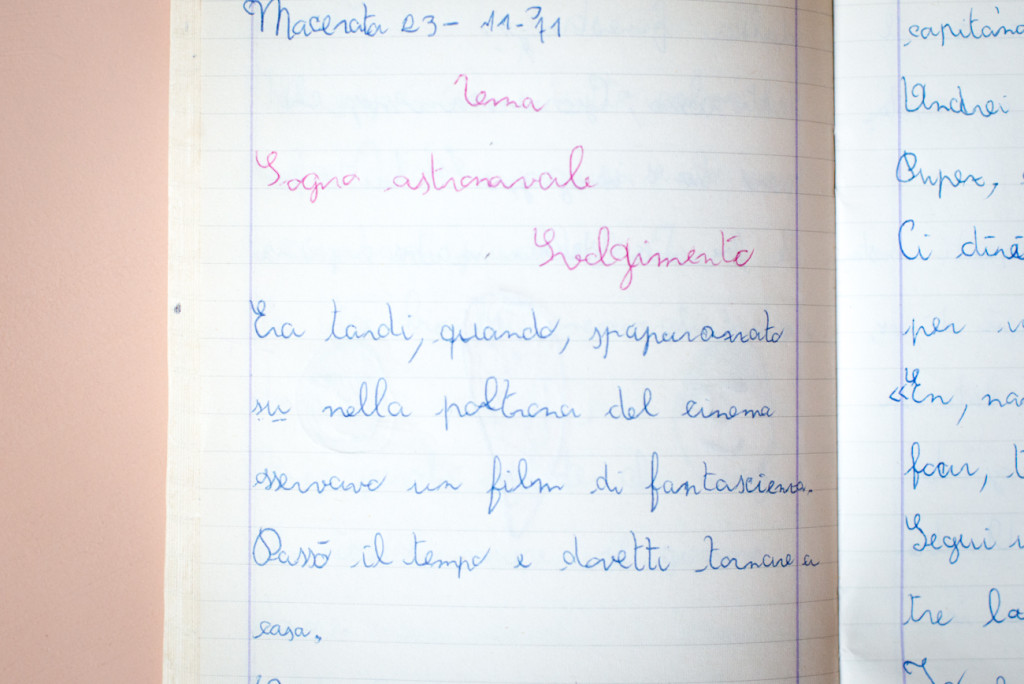 Macerata 23-11-71
Tema
Sogno astronavale
Svolgimento
Era tardi, quando, spaparanzato
su nella poltrona del cinema
osservavo un film di fantascienza.
Passò il tempo e dovetti tornare a
casa.
capitano
Andrei
Super,
Ci dire
per
«En, na
foar, t
Seguì
tre la